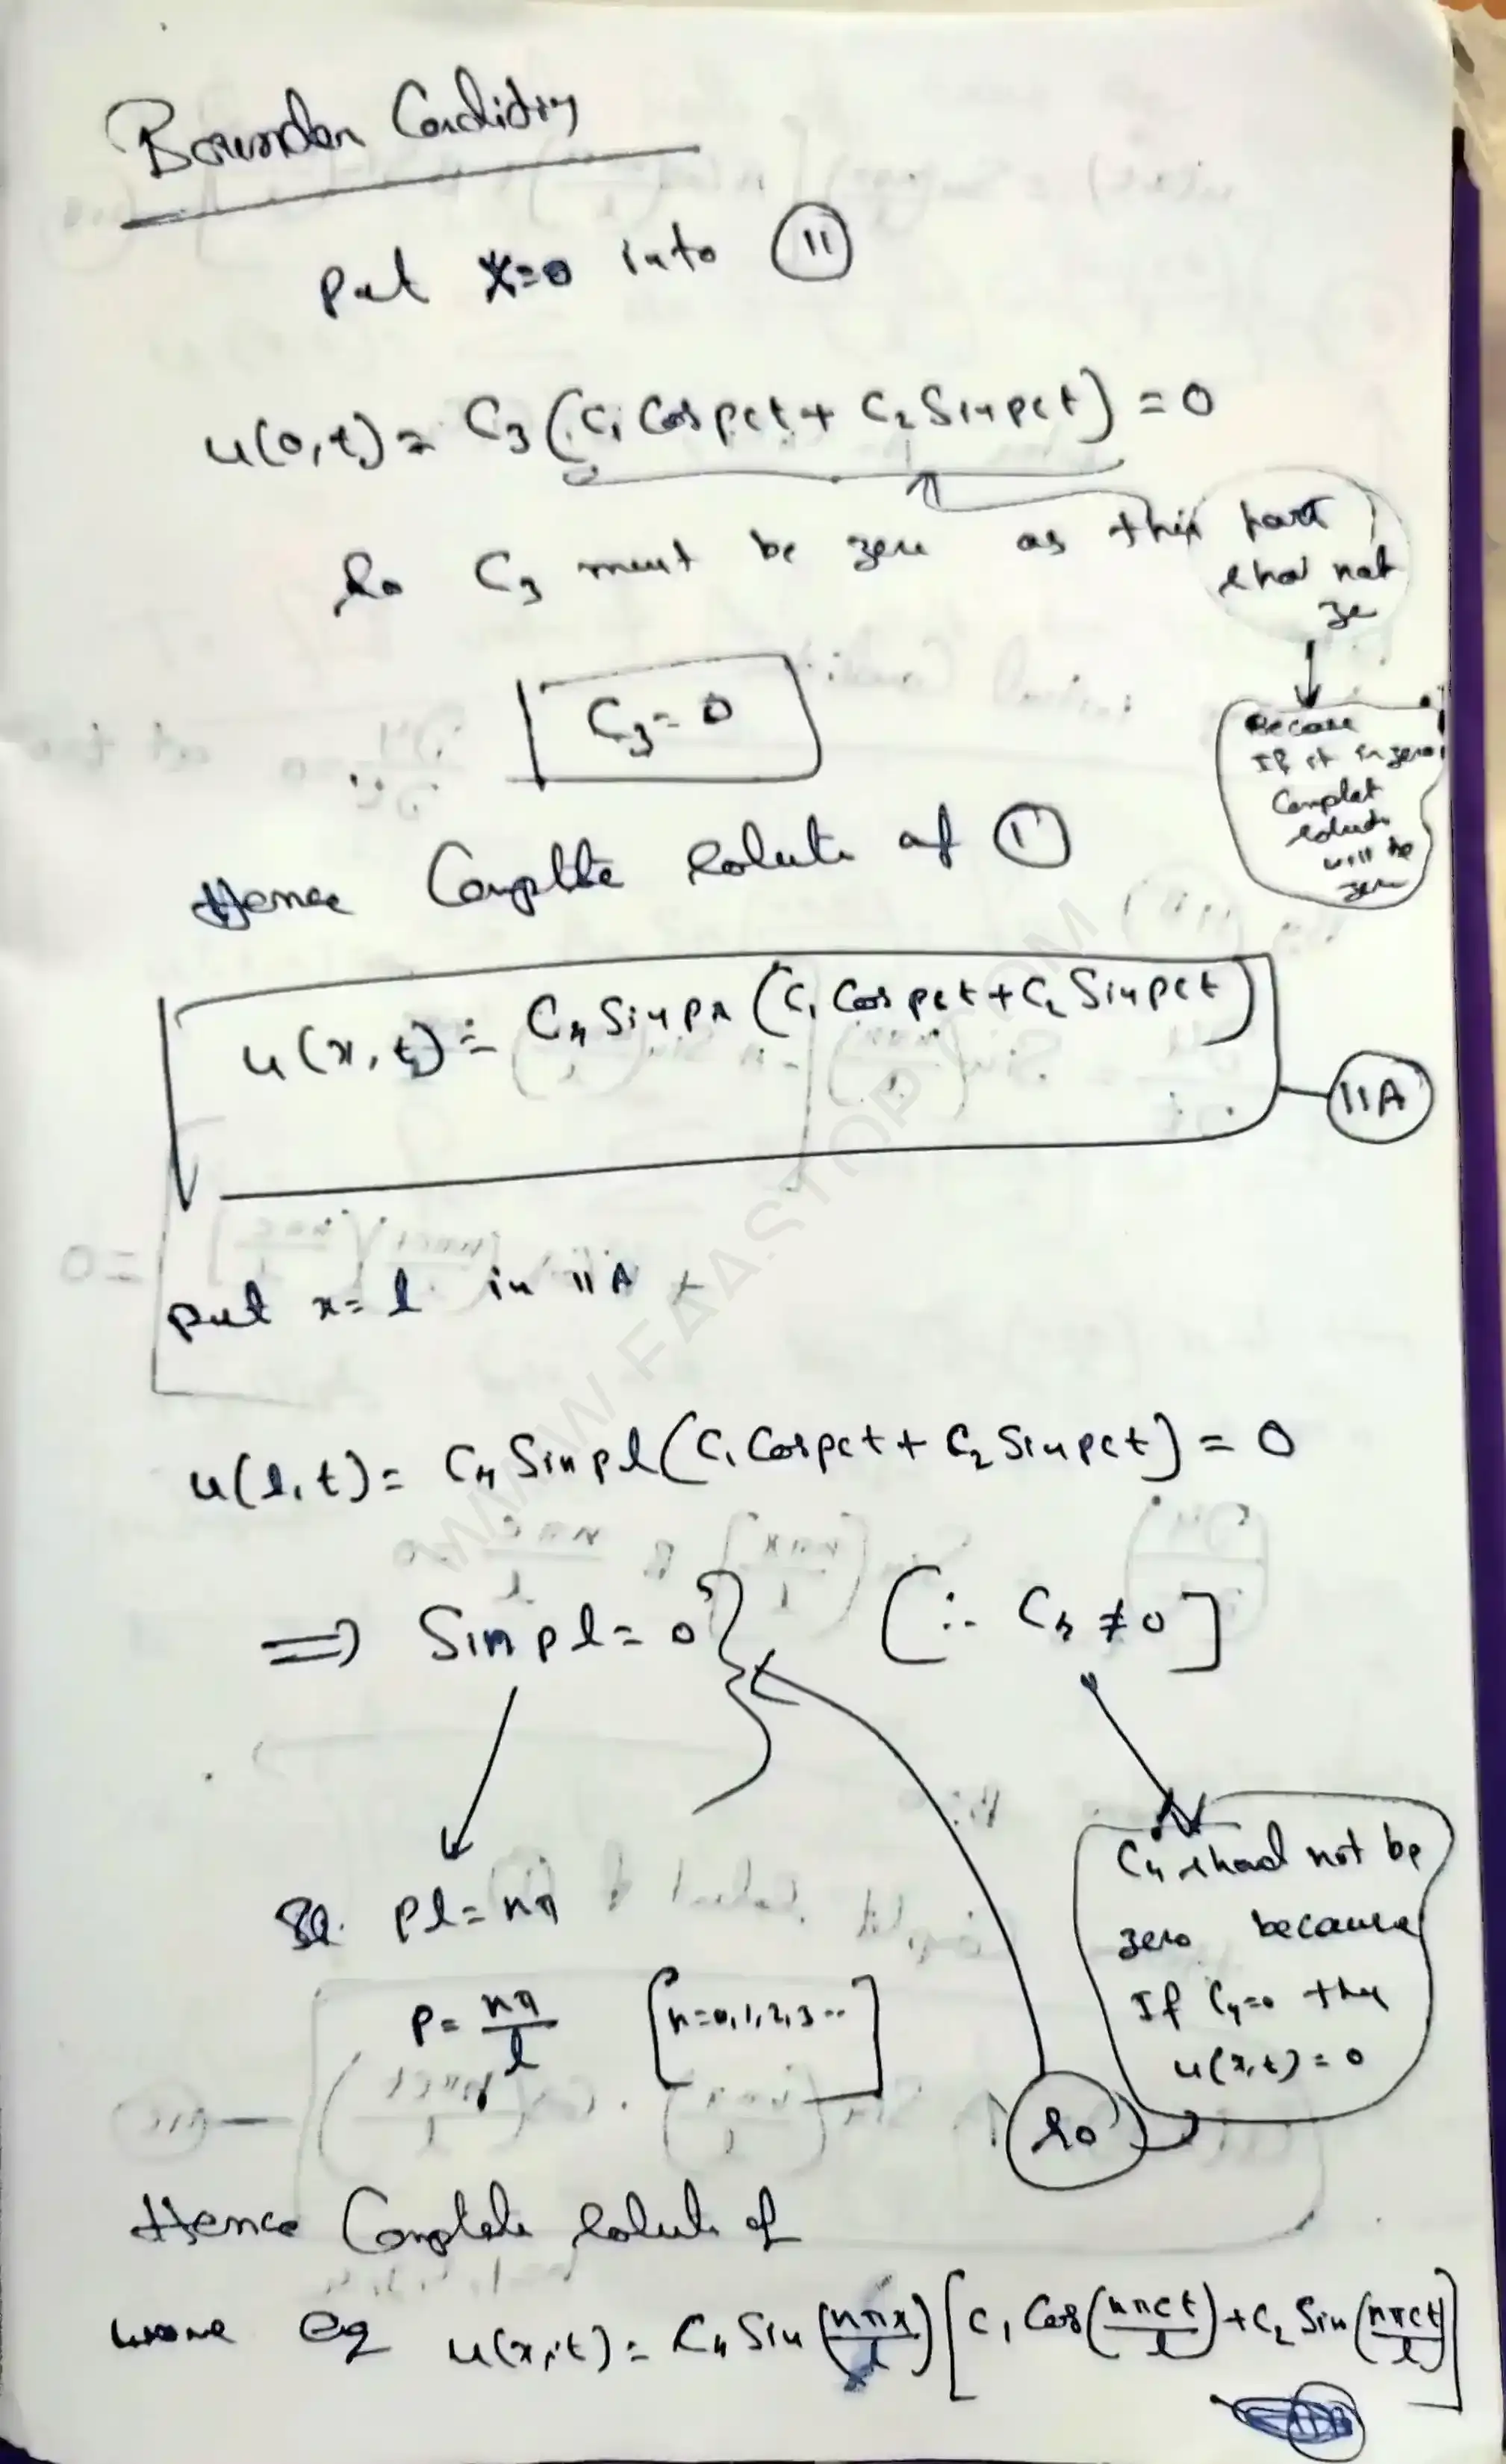 Boundary Condition
put x=0 into (11)
u(0,t) = C3 (C1 Cos pct + C2 Sin pct) = 0
So C3 must be zero as this part
shod not
ze
C3 = 0
Because
If it in zero
Complet
soluti
will be
zero
Hence Complte solute of (1)
u(x,t) = C4 Sin px (C1 Cos pct + C2 Sin pct)
11A
put x=l in 11A
u(l,t) = C4 Sin pl (C1 Cos pct + C2 Sin pct) = 0
=> Sin pl = 0 [∵ C4 ≠ 0]
C4 shod not be
zero because
If C4=0 the
u(x,t) = 0
So
So pl = nπ
p = nπ/l [n=0,1,2,3..]
Hence Complete solute of
wave eq u(x,t) = C4 Sin (nπx/l) [C1 Cos (nπct/l) + C2 Sin (nπct/l)]
WWW.FAASTOP.COM